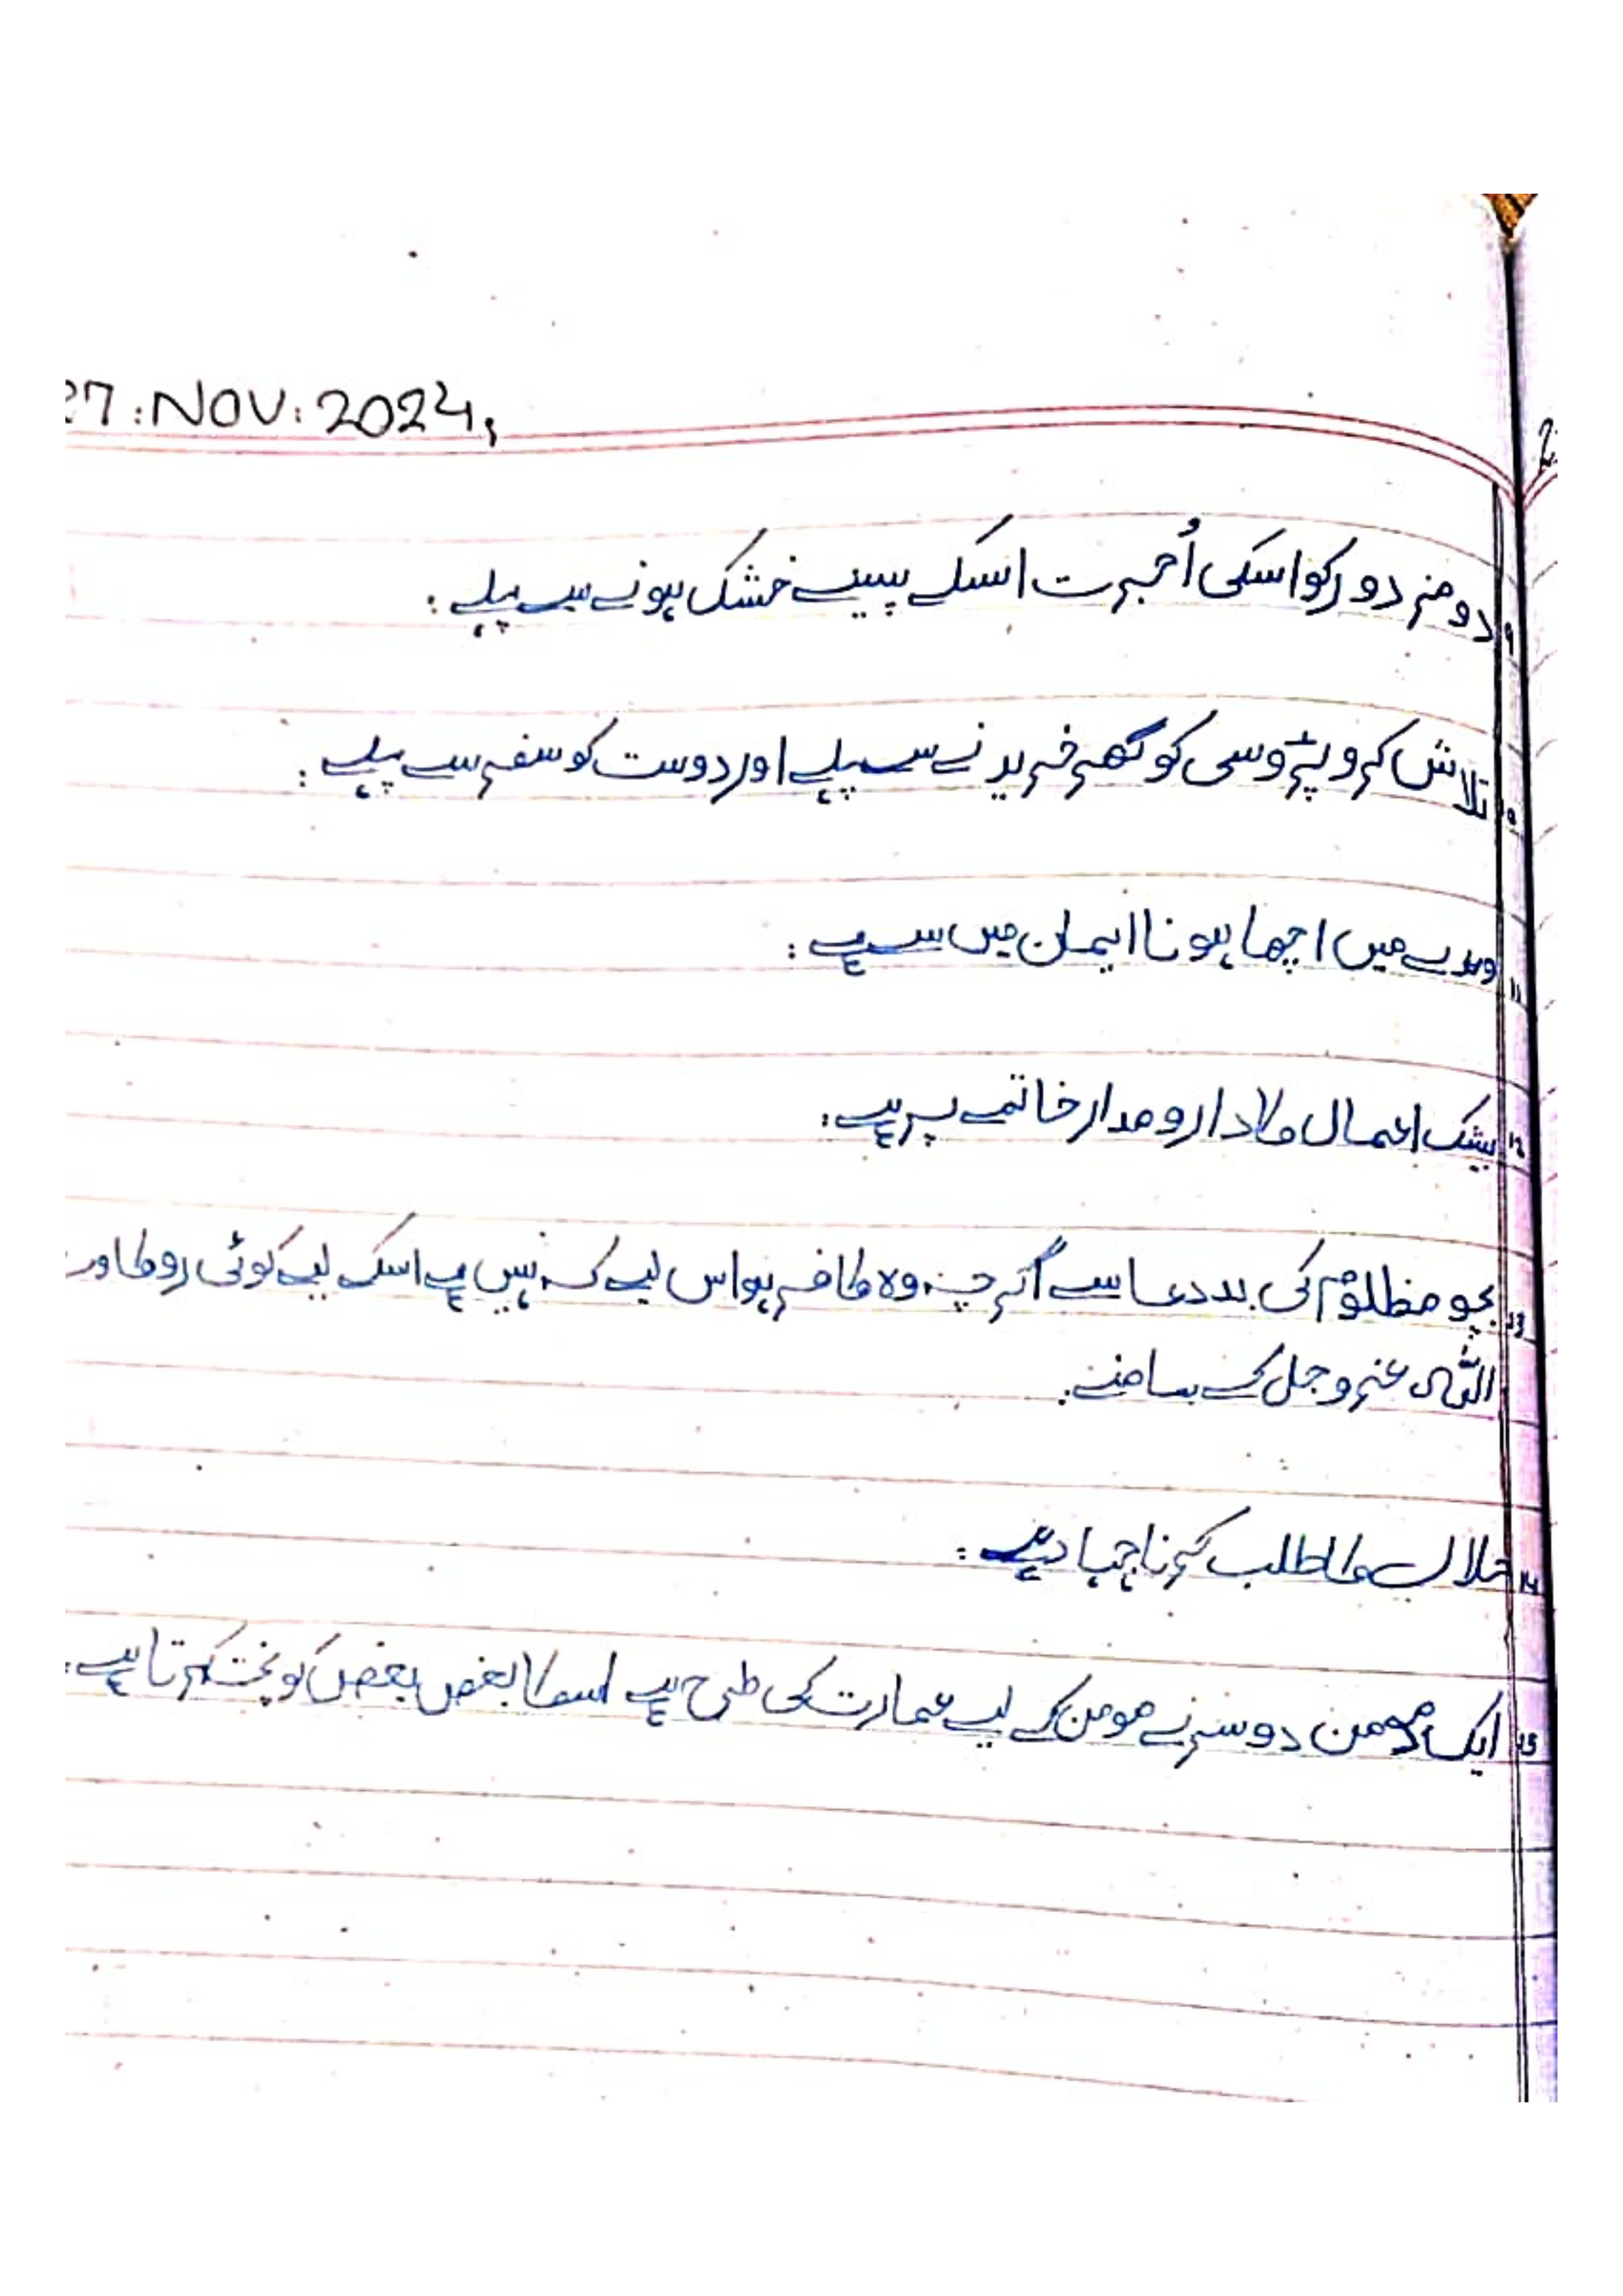 27:NOV:2024,
۹ دو مزدور کو اسکی اُجرت اسکے پسینے خشک ہونے سے پہلے:
تلاش کرو پڑوسی کو گھر خریدنے سے پہلے اور دوست کو سفر سے پہلے:
۱۱ وعدے میں اچھا ہونا ایمان میں سے ہے:
۱۲ بیشک اعمال کا دارومدار خاتمے پر ہے:
۱۳ بچو مظلوم کی بددعا سے اگرچہ وہ کافر ہو اس لیے کہ نہیں ہے اسکے لیے کوئی روکاور
اللہ عزوجل کے سامنے:
۱۴ حلال کا طلب کرنا جہاد ہے:
۱۵ ایک مومن دوسرے مومن کے لیے عمارت کی طرح ہے اسکا بعض بعض کو پختہ کرتا ہے: